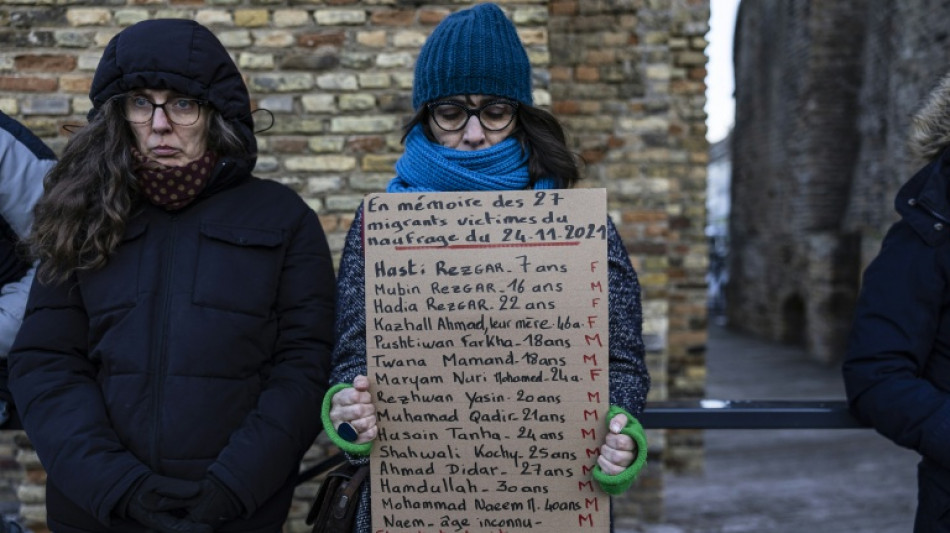 En mémoire des 27
migrants victimes du
naufrage du 24.11.2021
Hasti REZGAR_7 ans F
Mubin REZGAR_16 ans M
Hadia REZGAR_22 ans F
Kazhall Ahmad, leur mère_46a. F
Pushtiwan Farkha_18ans M
Twana Mamand_18ans M
Maryam Nuri Mohamed_24a. F
Rezhwan Yasin_20ans M
Muhamad Qadir_21ans M
Husain Tanha_24 ans M
Shahwali Kochy_25ans M
Ahmad Didar_27ans M
Hamdullah_30ans M
Mohammad Naeem M.40ans M
Naem_âge inconnu_ M